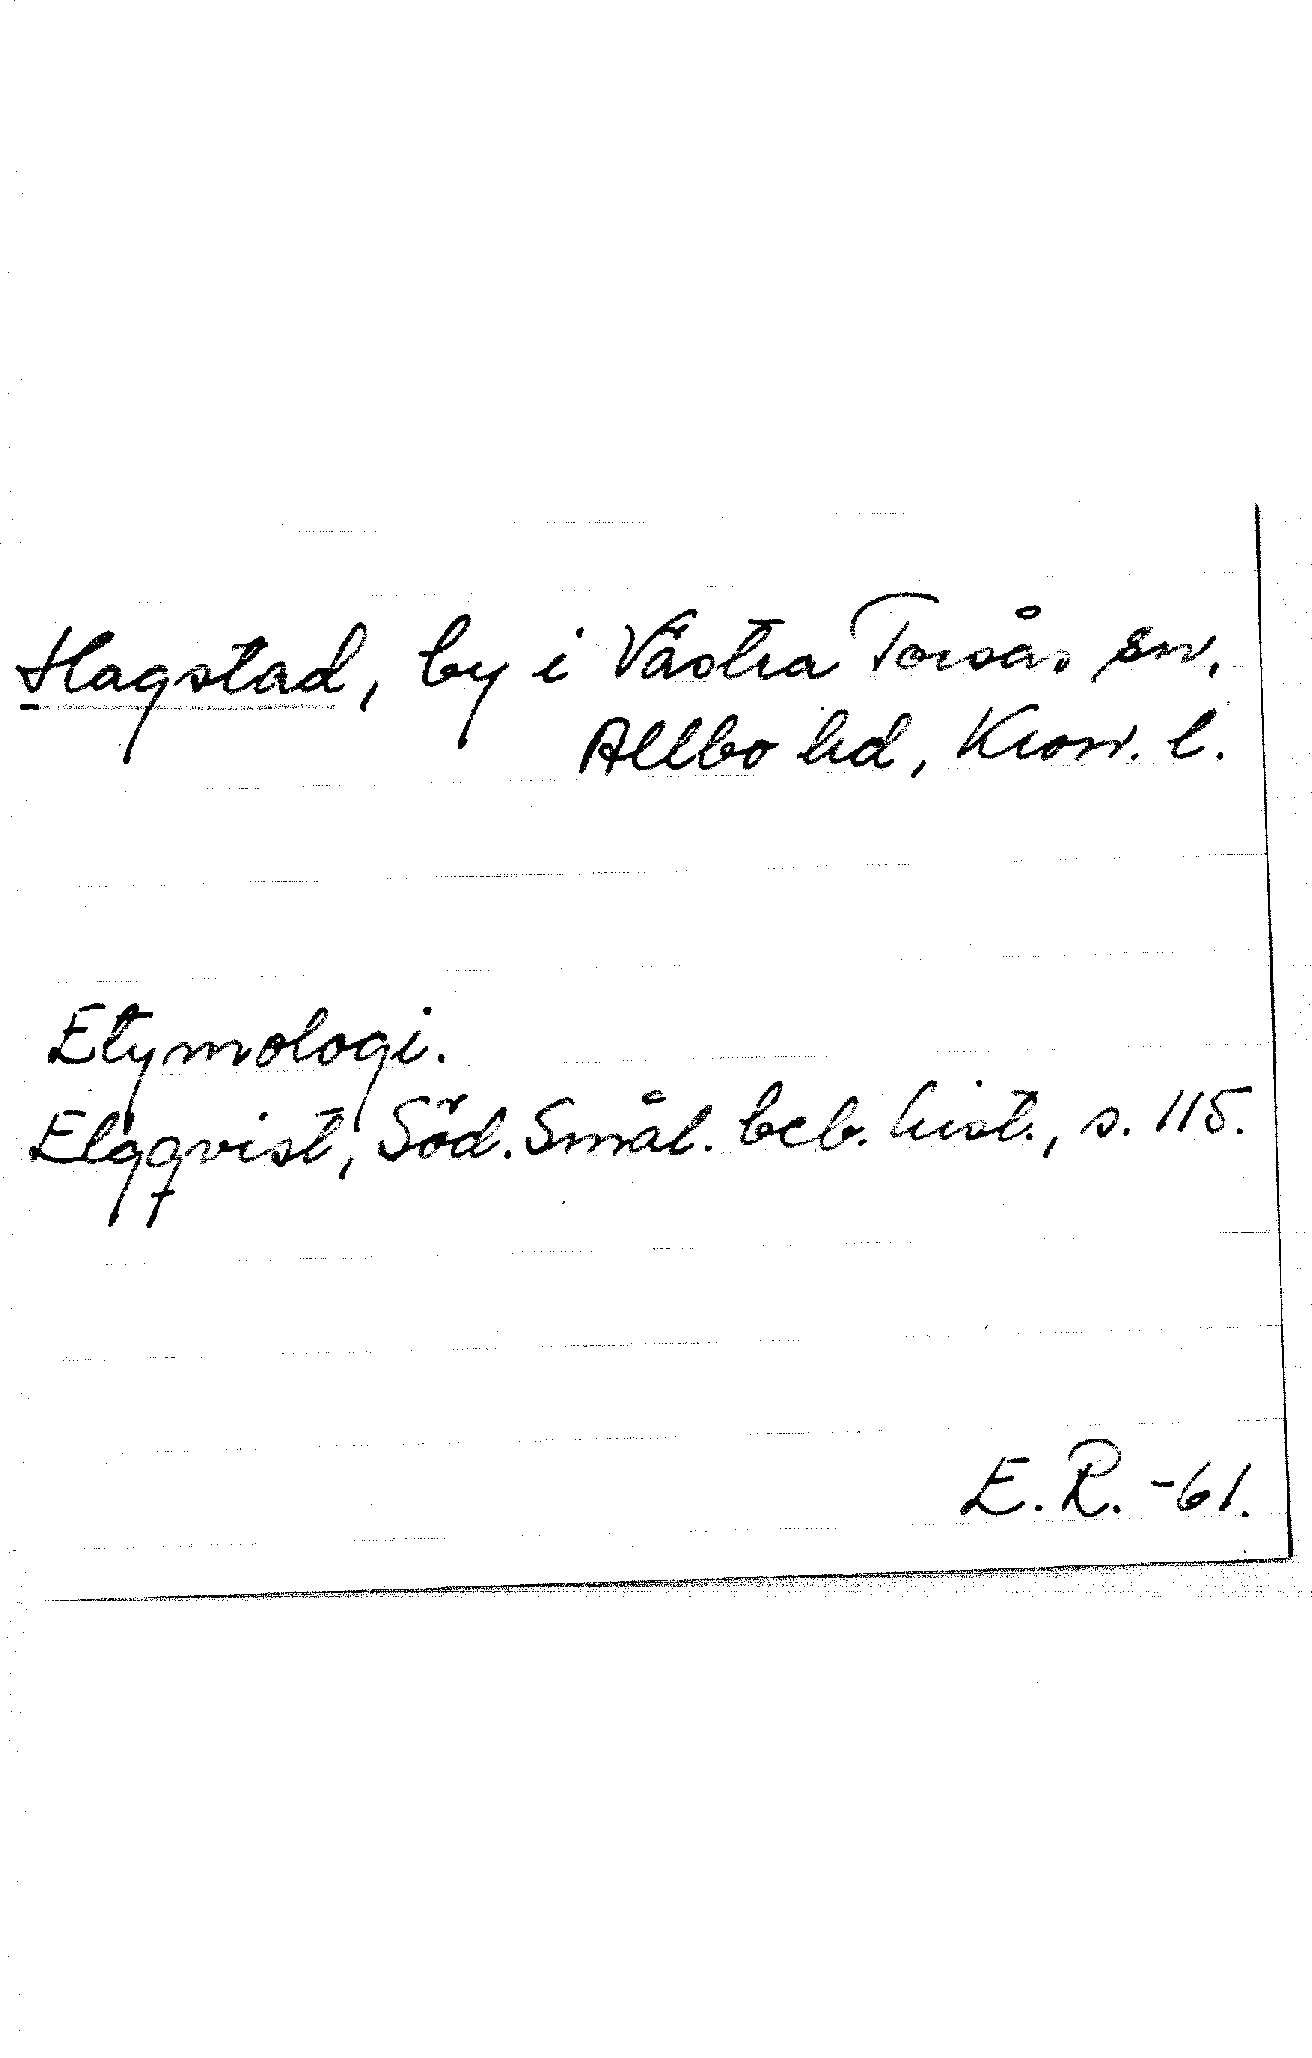 Hagstad, by i Västra Torsås sn,
Allbo hd, Kron. l.
Etymologi.
Elgqvist, Söd. Smål. beb. hist., s. 115.
E. R. -61.